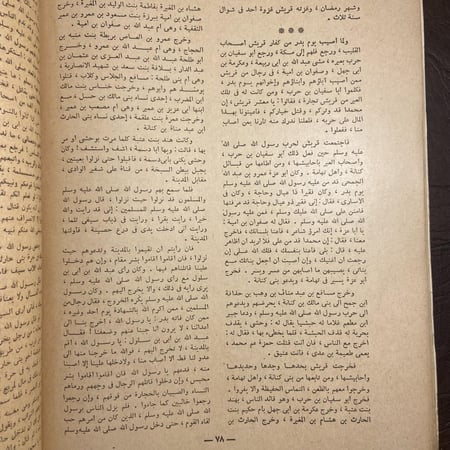 وشهر رمضان ، وغزته قريش غزوة أحد في شوال
سنة ثلاث .
***
ولما أصيب يوم بدر من كفار قريش أصحاب
القليب ، ورجع فلهم إلى مكة ، ورجع أبو سفيان بن
حرب بعيره ، مشى عبد الله بن أبي ربيعة ، وعكرمة بن
أبي جهل ، وصفوان بن أمية ، في رجال من قريش
ممن أصيب آباؤهم وأبناؤهم وإخوانهم يوم بدر ،
فكلموا أبا سفيان بن حرب ، ومن كانت له في تلك
العير من قريش تجارة ، فقالوا : يا معشر قريش ، إن
محمدا قد وتركم ، وقتل خياركم ، فأعينونا بهذا
المال على حربه ، فلعلنا ندرك منه ثأرنا بمن أصاب
منا ، ففعلوا .
فاجتمعت قريش لحرب رسول الله صلى الله
عليه وسلم حين فعل ذلك أبو سفيان بن حرب ،
وأصحاب العير بأحابيشها ، ومن أطاعها من قبائل
كنانة ، وأهل تهامة . وكان أبو عزة عمرو بن عبد الله
الجمحي قد من عليه رسول الله صلى الله عليه وسلم
يوم بدر ، وكان فقيرا ذا عيال وحاجة ، وكان في
الأسارى ، فقال : إني فقير ذو عيال وحاجة قد عرفتها
فامنن علي صلى الله عليك وسلم ، فمن عليه رسول
الله صلى الله عليه وسلم . فقال له صفوان بن أمية :
يا أبا عزة ، إنك امرؤ شاعر ، فأعنا بلسانك ، فاخرج
معنا ، فقال : إن محمدا قد من علي فلا أريد أن أظاهر
عليه ، قال : بلى فأعنا بنفسك ، فلك الله علي إن
رجعت أن أغنيك ، وإن أصبت أن أجعل بناتك مع
بناتي ، يصيبهن ما أصابهن من عسر ويسر . فخرج
أبو عزة يسير في تهامة ، ويدعو بني كنانة .
وخرج مسافع بن عبد مناف بن وهب بن حذافة
ابن جمح إلى بني مالك بن كنانة ، يحرضهم ويدعوهم
إلى حرب رسول الله صلى الله عليه وسلم ، ودعا جبير
ابن مطعم غلاما له حبشيا يقال له : وحشي ، يقذف
بحربة له قذف الحبشة ، قلما يخطىء بها ، فقال له :
اخرج مع الناس ، فإن أنت قتلت حمزة عم محمد ،
بعمي طعيمة بن عدي ، فأنت عتيق .
فخرجت قريش بحدها وجدها وحديدها
وأحابيشها ، ومن تابعها من بني كنانة ، وأهل تهامة ،
وخرجوا معهم بالظعن ، التماس الحفيظة وألا يفروا .
فخرج أبو سفيان بن حرب ، وهو قائد الناس ، بهند
بنت عتبة ، وخرج عكرمة بن أبي جهل بأم حكيم بنت
الحارث بن هشام بن المغيرة ، وخرج الحارث بن
هشام بن المغيرة بفاطمة بنت الوليد بن المغيرة ، وخرج
صفوان بن أمية ببرزة بنت مسعود بن عمرو بن عمير
الثقفية ، وهي أم عبد الله بن صفوان بن أمية .
وخرج عمرو بن العاص بريطة بنت منبه بن
الحجاج ، وهي أم عبد الله بن عمرو ، وخرج طلحة
ابن أبي طلحة عبد الله بن عبد العزى بن عثمان بن
عبد الدار ، بسلافة بنت سعد بن شهيد الأنصارية ،
وهي أم بني طلحة : مسافع والجلاس وكلاب ، قتلوا
يومئذ هم وأبوهم ، وخرجت خناس بنت مالك
ابن المضرب إحدى نساء بني مالك بن حسل ، مع
ابنها أبي عزيز بن عمير ، وهي أم مصعب بن عمير ،
وخرجت عمرة بنت علقمة ، إحدى نساء بني الحارث
ابن عبد مناة بن كنانة .
وكانت هند بنت عتبة كلما مرت بوحشي أو مر
بها ، قالت : ويها أبا دسمة ، اشف واشتشف ! وكان
وحشي يكنى بأبي دسمة ، فأقبلوا حتى نزلوا بعينين ،
بجبل ببطن السبخة ، من قناة على شفير الوادي ،
مقابل المدينة .
فلما سمع بهم رسول الله صلى الله عليه وسلم
والمسلمون قد نزلوا حيث نزلوا ، قال رسول الله
صلى الله عليه وسلم للمسلمين : إني قد رأيت والله
خيرا ، رأيت بقرا ، ورأيت في ذباب سيفي ثلما ،
ورأيت أني أدخلت يدي في درع حصينة ، فأولتها
المدينة .
فإن رأيتم أن تقيموا بالمدينة وتدعوهم حيث
نزلوا ، فإن أقاموا أقاموا بشر مقام ، وإن هم دخلوا
علينا قاتلناهم فيها . وكان رأي عبد الله بن أبي بن
سلول مع رأي رسول الله صلى الله عليه وسلم ،
يرى رأيه في ذلك ، وألا يخرج إليهم . وكان رسول
الله صلى الله عليه وسلم يكره الخروج ، فقال رجال من
المسلمين ، ممن أكرم الله بالشهادة يوم أحد وغيره ،
ممن كان فاته بدر : يا رسول الله ، اخرج بنا إلى
أعدائنا ، لا يرون أنا جبنا عنهم وضعفنا ! فقال
عبد الله بن أبي بن سلول : يا رسول الله ، أقم
بالمدينة لا تخرج إليهم ، فوالله ما خرجنا منها إلى
عدو لنا قط إلا أصاب منا ، ولا دخلها علينا إلا أصبنا
منه ، فدعهم يا رسول الله ، فإن أقاموا أقاموا بشر
محبس ، وإن دخلوا قاتلهم الرجال في وجههم ورماهم
النساء والصبيان بالحجارة من فوقهم ، وإن رجعوا
رجعوا خائبين كما جاءوا . فلم يزل الناس برسول
الله صلى الله عليه وسلم ، الذين كان من أمرهم حب
لقاء القوم ، حتى دخل رسول الله صلى الله عليه وسلم
— ٧٨ —